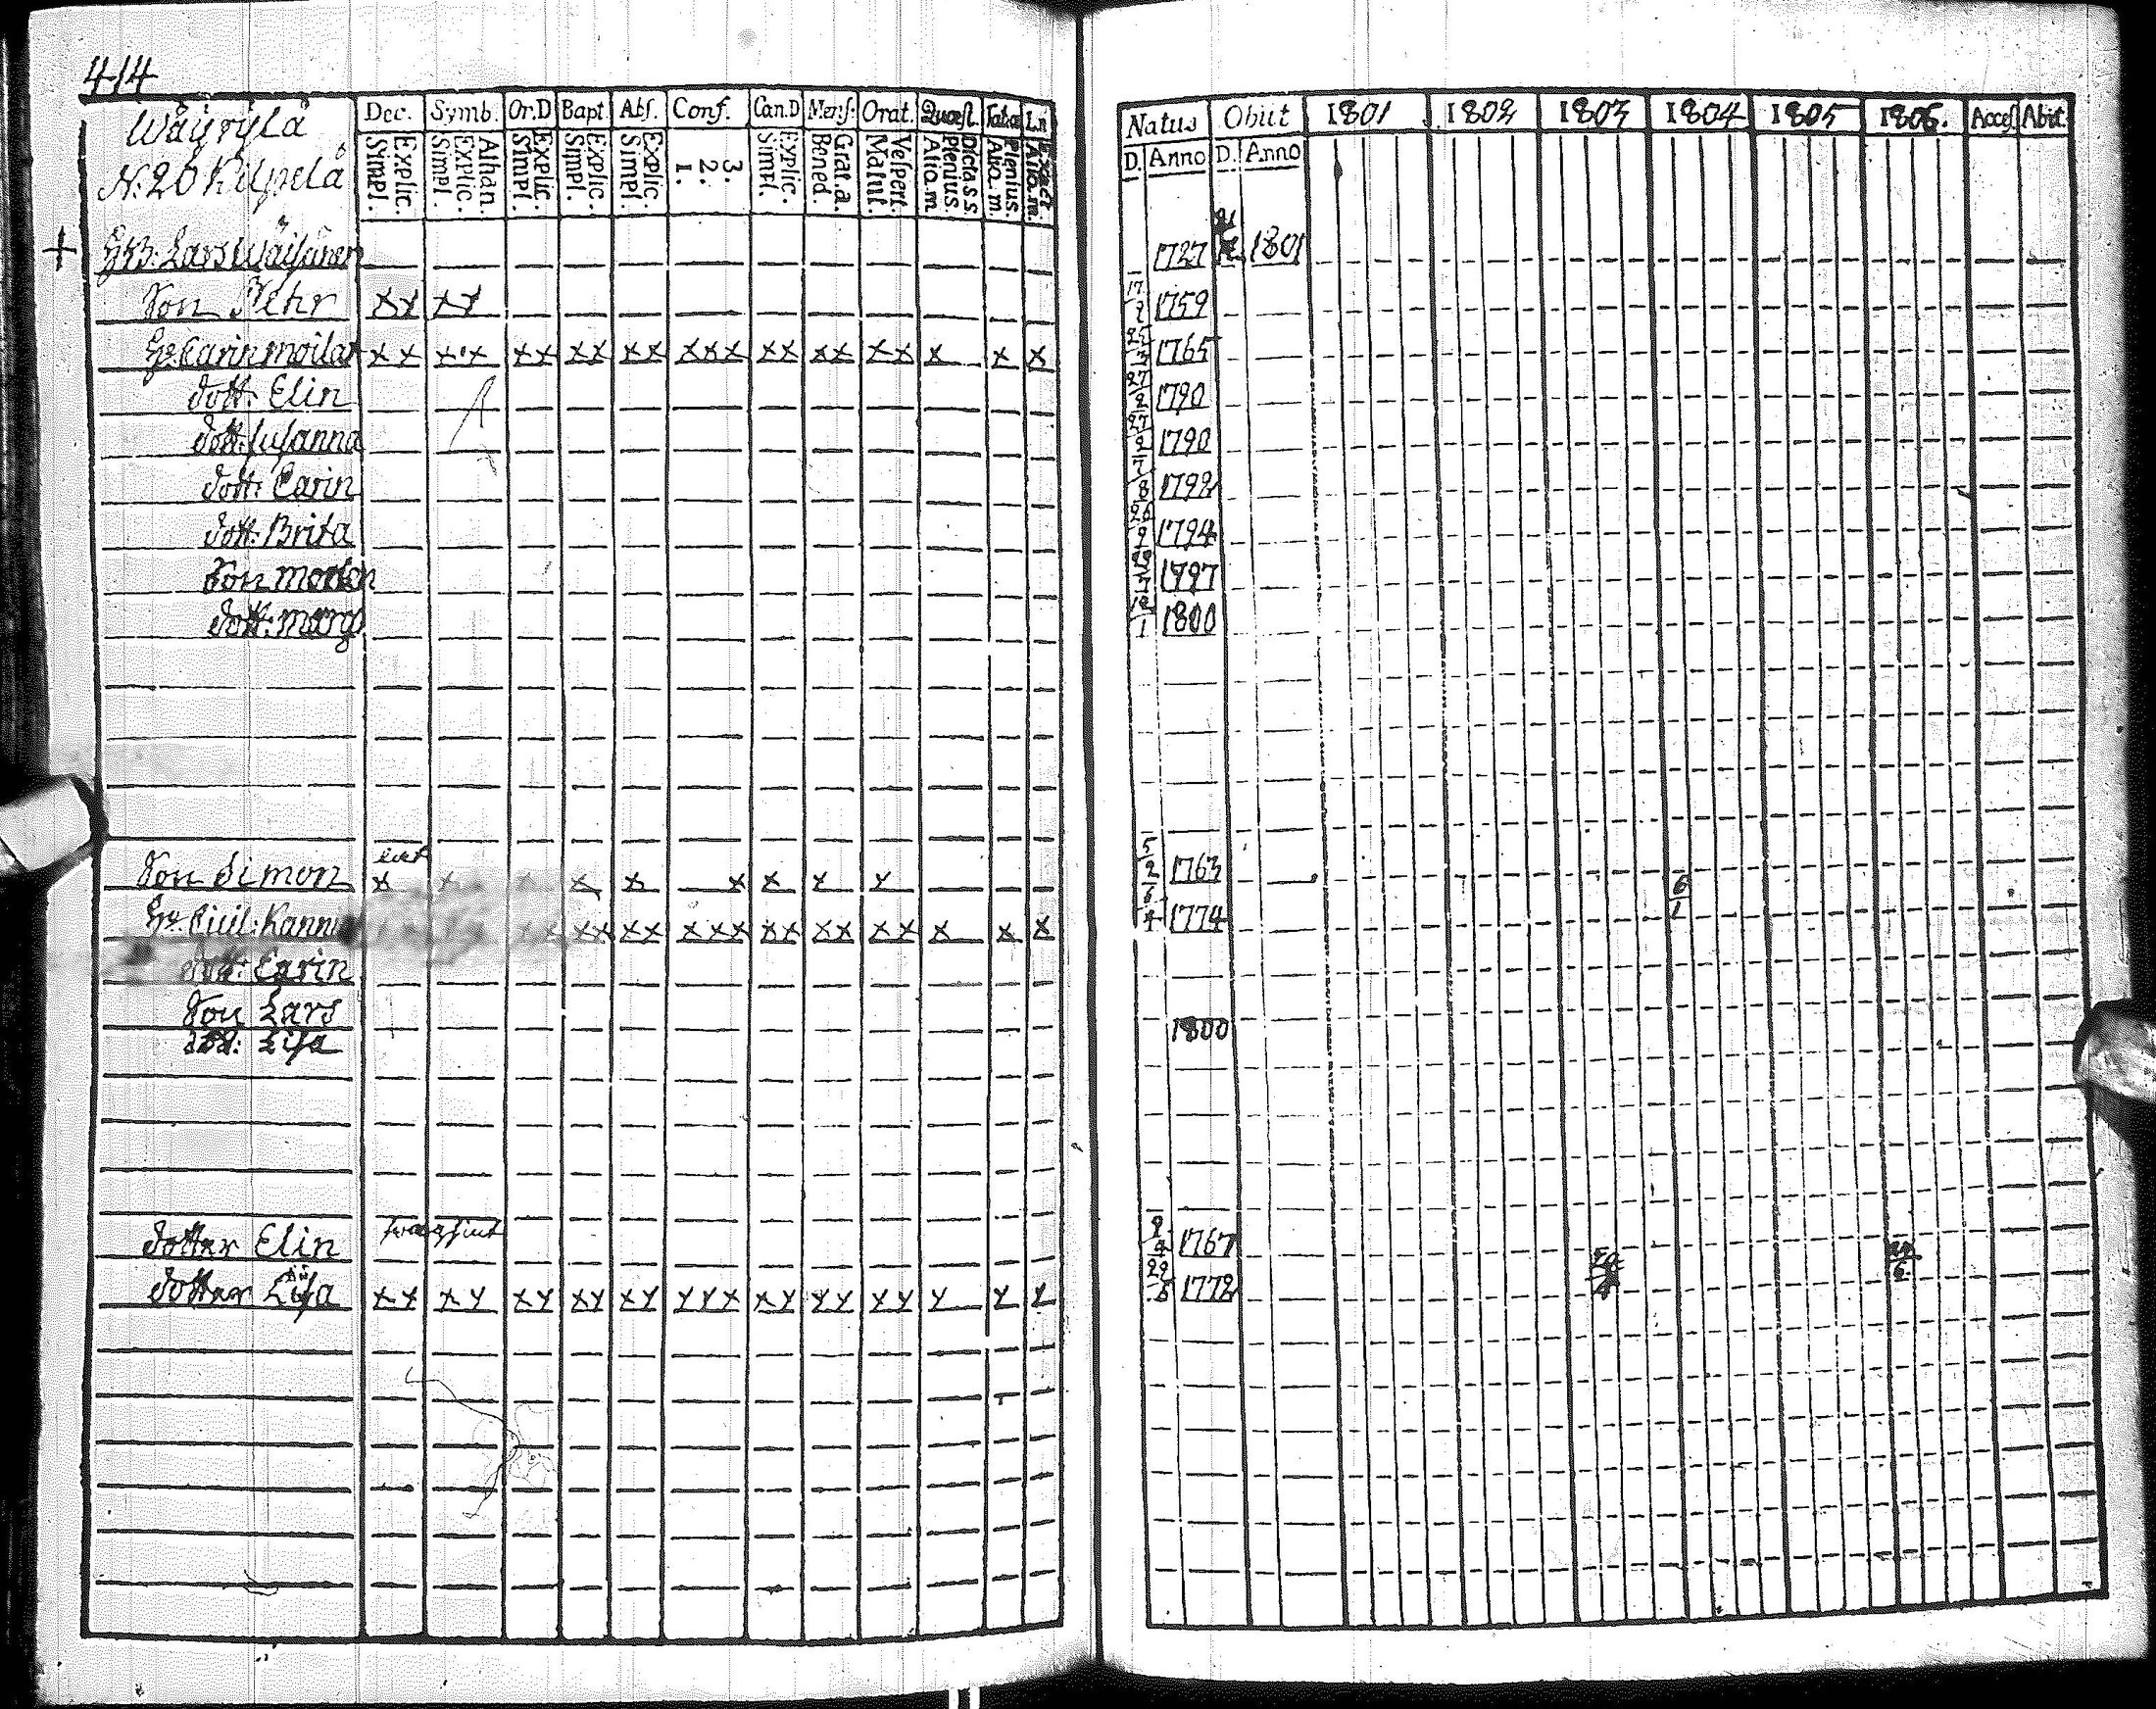 414
Wäyrylä
N: 26 Kilpelä
Dec. Symb. Or.D Bapt. Abs. Conf. Can.D Mens. Orat. Quæst. Tab.æ L.n
Explic. Simpl. Athan. Explic. Simpl. Explic. Simpl. Explic. Simpl. Explic. Simpl. 3. 2. 1. Explic. Simpl. Grat. a. Bened. Vespert. Matut. Dicta s.s. Plenius. Alio.m Plenius. Alio.m. exact Alio.m.
Natus Obiit 1801 1802 1803 1804 1805 1806. Access. Abit.
D. Anno D. Anno
+ Lars Wäisänen 1727 1801
Son Pehr x x x x 17/2 1759
H: Carin Moilan x x x x x x x x x x x x x x x x x x x x x x 25/3 1765
dott. Elin 27/2 1790
dott: Susanna 27/2 1790
dott: Carin 7/8 1792
dott: Brita 26/9 1794
Son Morten 1797
dott: Marg 12/1 1800
Son Simon x x x x x x x x x 5/2 1763 6/1
H: Cicil: Kann x x x x x x x x x x x x x x x x x x x 6/4 1774
dott: Carin
Son Lars
dott: Lisa 1800
dotter Elin 9/4 1767
dotter Lisa x x x y x y x y x y y y y x y y y x y y y y 29/6 1772